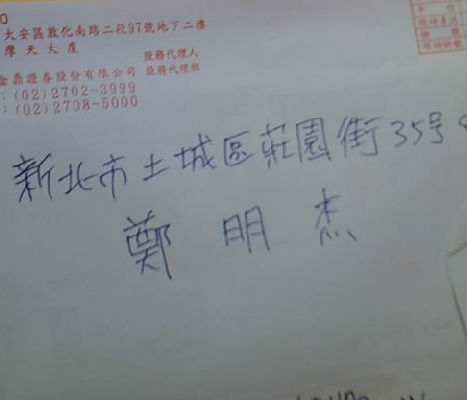 大安區敦化南路二段97號地下二樓
摩天大廈
股務代理人
金鼎證券股份有限公司 股務代理部
:(02)2702-3999
:(02)2708-5000
新北市土城區莊園街35号
鄭明杰